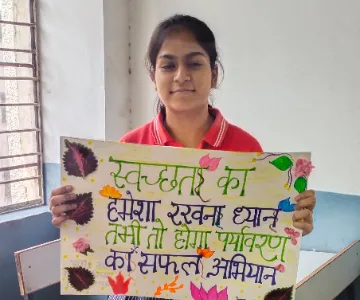 स्वच्छता का
हमेशा रखना ध्यान
तभी तो होगा पर्यावरण
का सफल अभियान